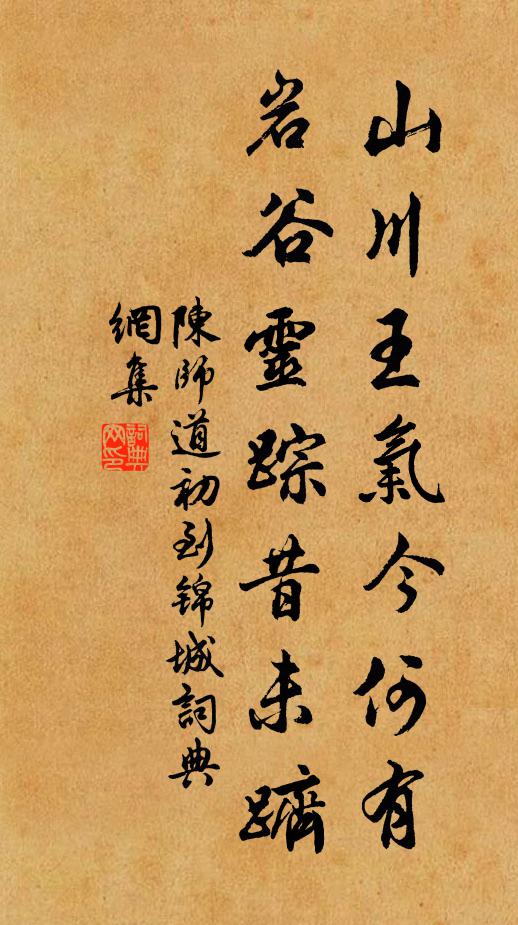 山川王氣今何有
岩谷靈踪昔未躋
陳師道初到锦城詞典
網集
詞典
网印